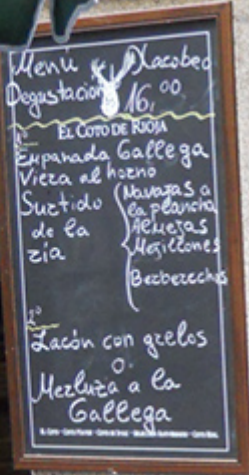 Menú Xacobeo
Degustación 16,00
EL COTO DE RIOJA
1º
Empanada Gallega
Vieira al horno
Surtido de la ría
Navajas a la plancha
Almejas
Mejillones
Berberechos
2º
Lacón con grelos
O.
Merluza a la
Gallega